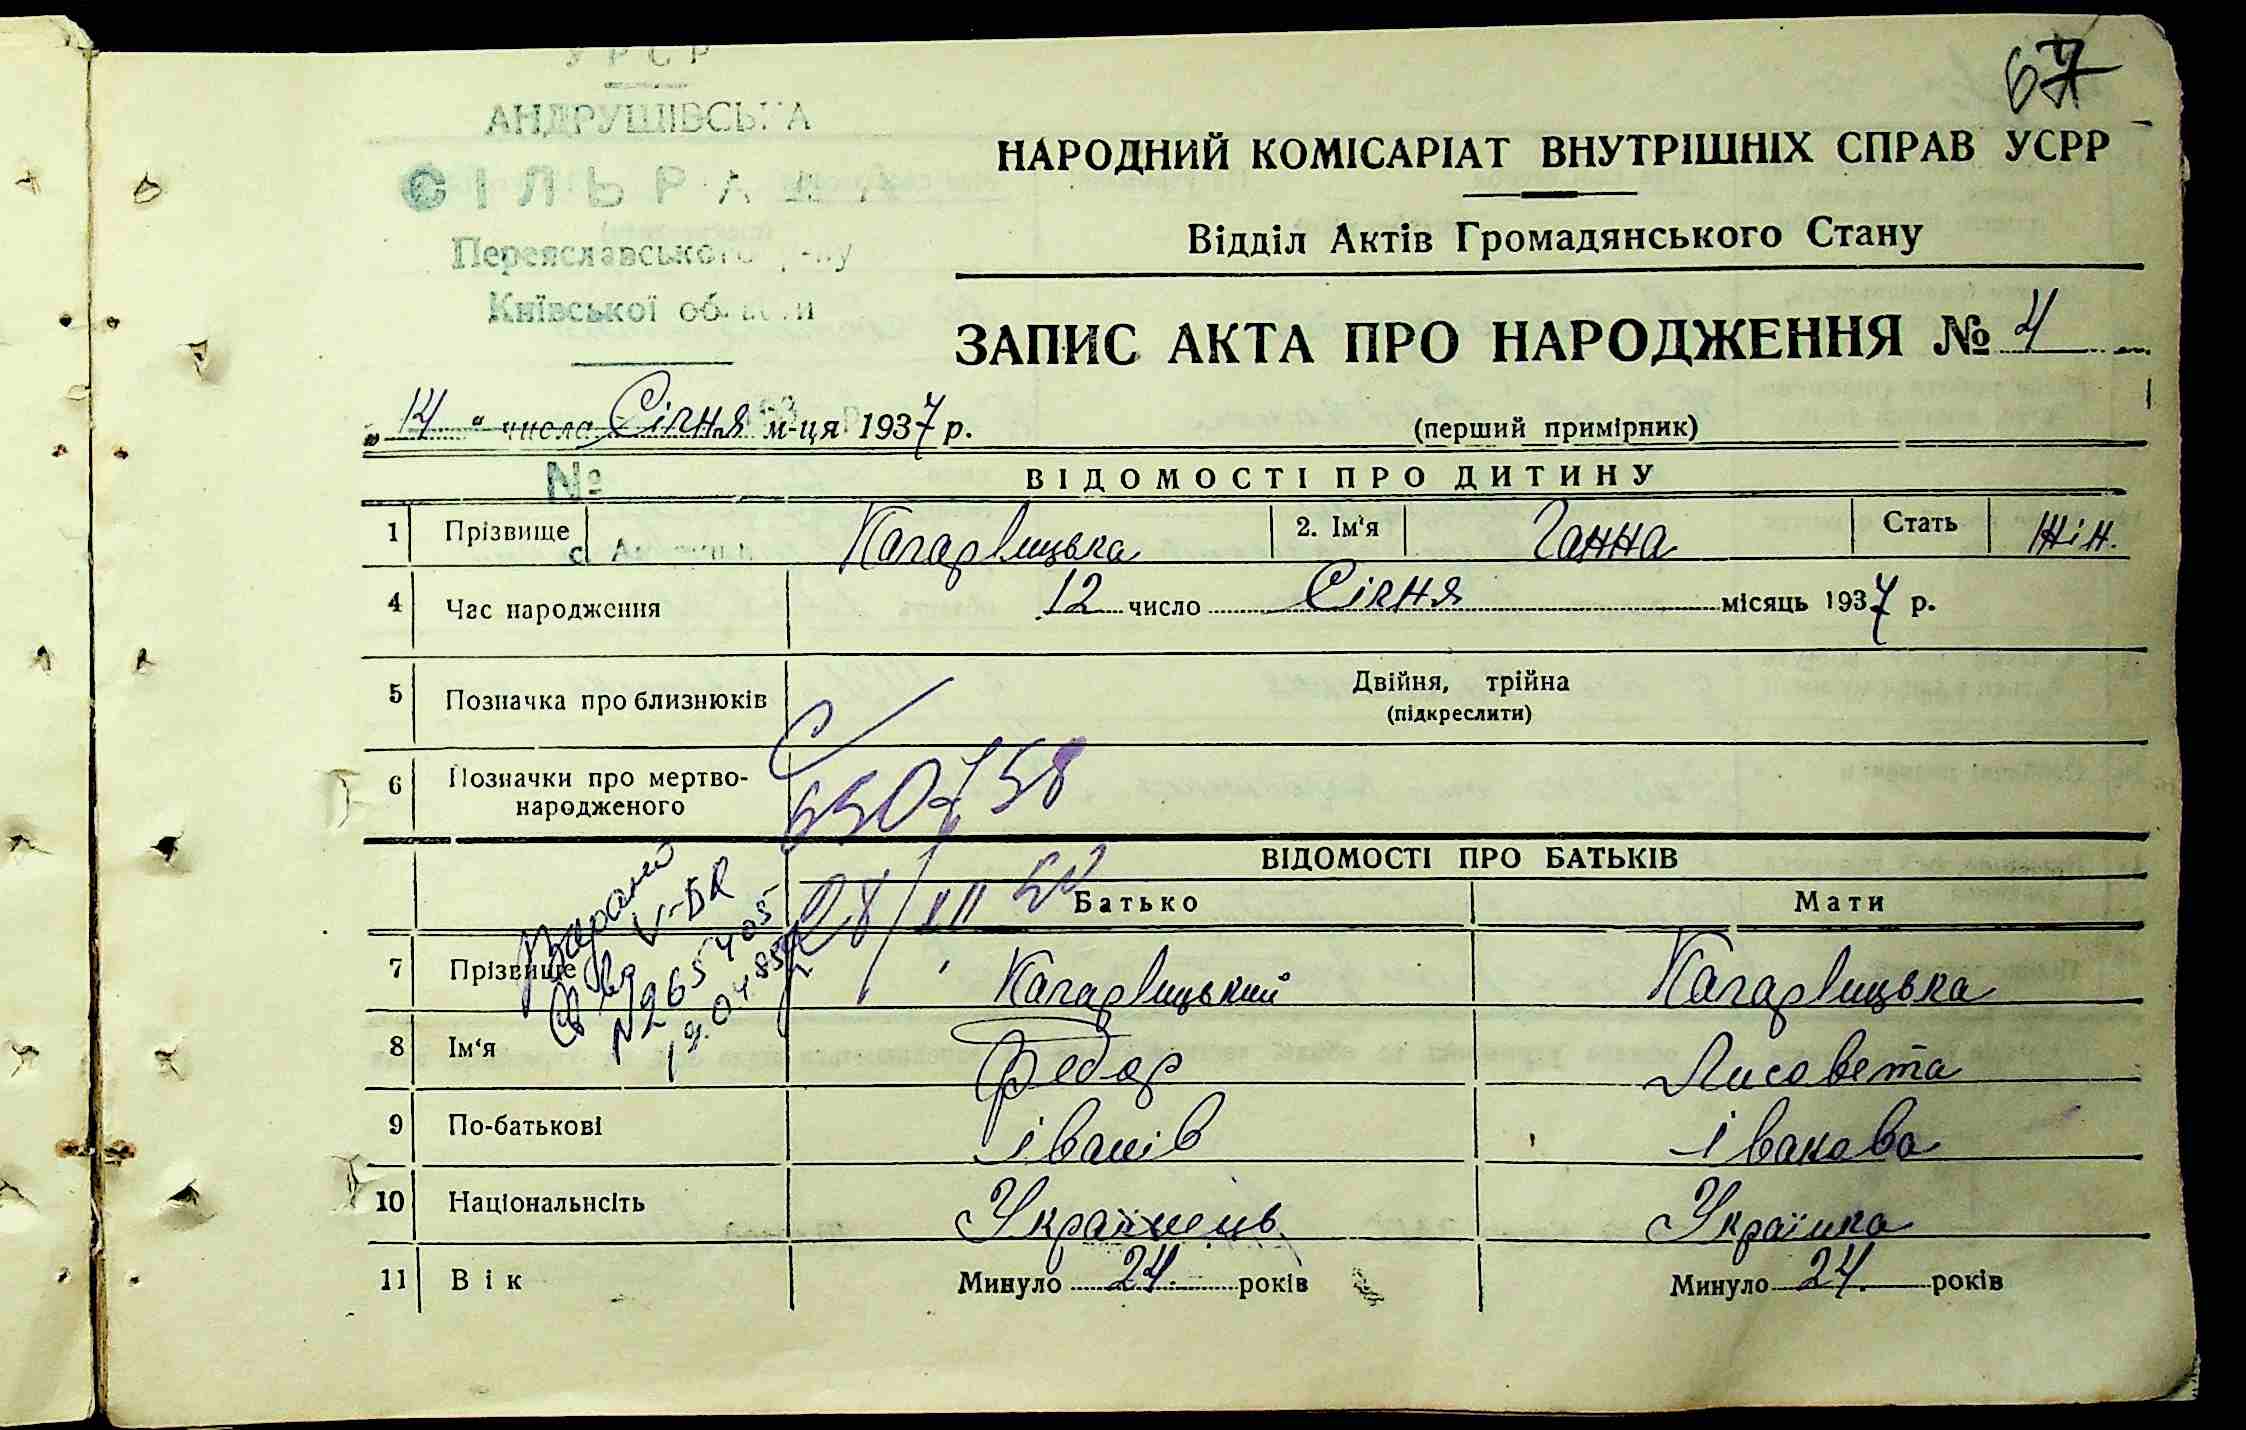 67
УРСР
АНДРУШІВСЬКА
СІЛЬРАДА
Переяславського р-ну
Київської області
НАРОДНИЙ КОМІСАРІАТ ВНУТРІШНІХ СПРАВ УСРР
Відділ Актів Громадянського Стану
ЗАПИС АКТА ПРО НАРОДЖЕННЯ № 4
„14“ числа Січня м-ця 1937 р.
(перший примірник)
№
ВІДОМОСТІ ПРО ДИТИНУ
1 Прізвище Кагарлицька 2. Ім'я Ганна Стать жін.
4 Час народження 12 число Січня місяць 1937 р.
5 Позначка про близнюків Двійня, трійна
(підкреслити)
6 Позначки про мертво-
народженого
ВІДОМОСТІ ПРО БАТЬКІВ
Батько Мати
7 Прізвище Кагарлицький Кагарлицька
8 Ім'я Федор Лисавета
9 По-батькові Іванів Іванова
10 Національнсіть Українець Українка
11 Вік Минуло 24 років Минуло 24 років